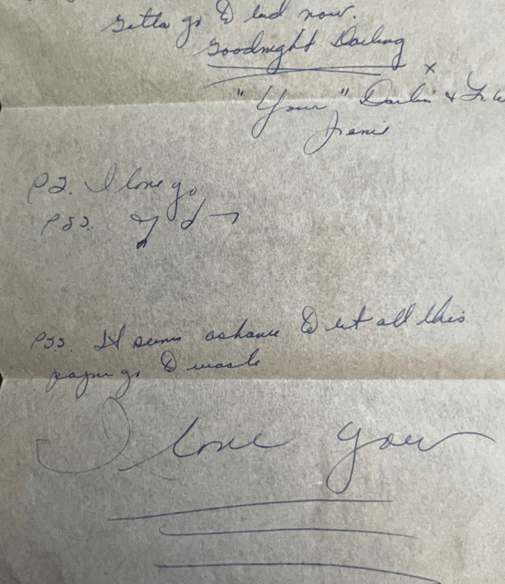 Gotta go to bed now.
Goodnight Darling
x
"Your" Darlin &
Irenie
PS. I love yo
PSS.
PSS. It seems ashame to let all this
paper go to waste
I love you